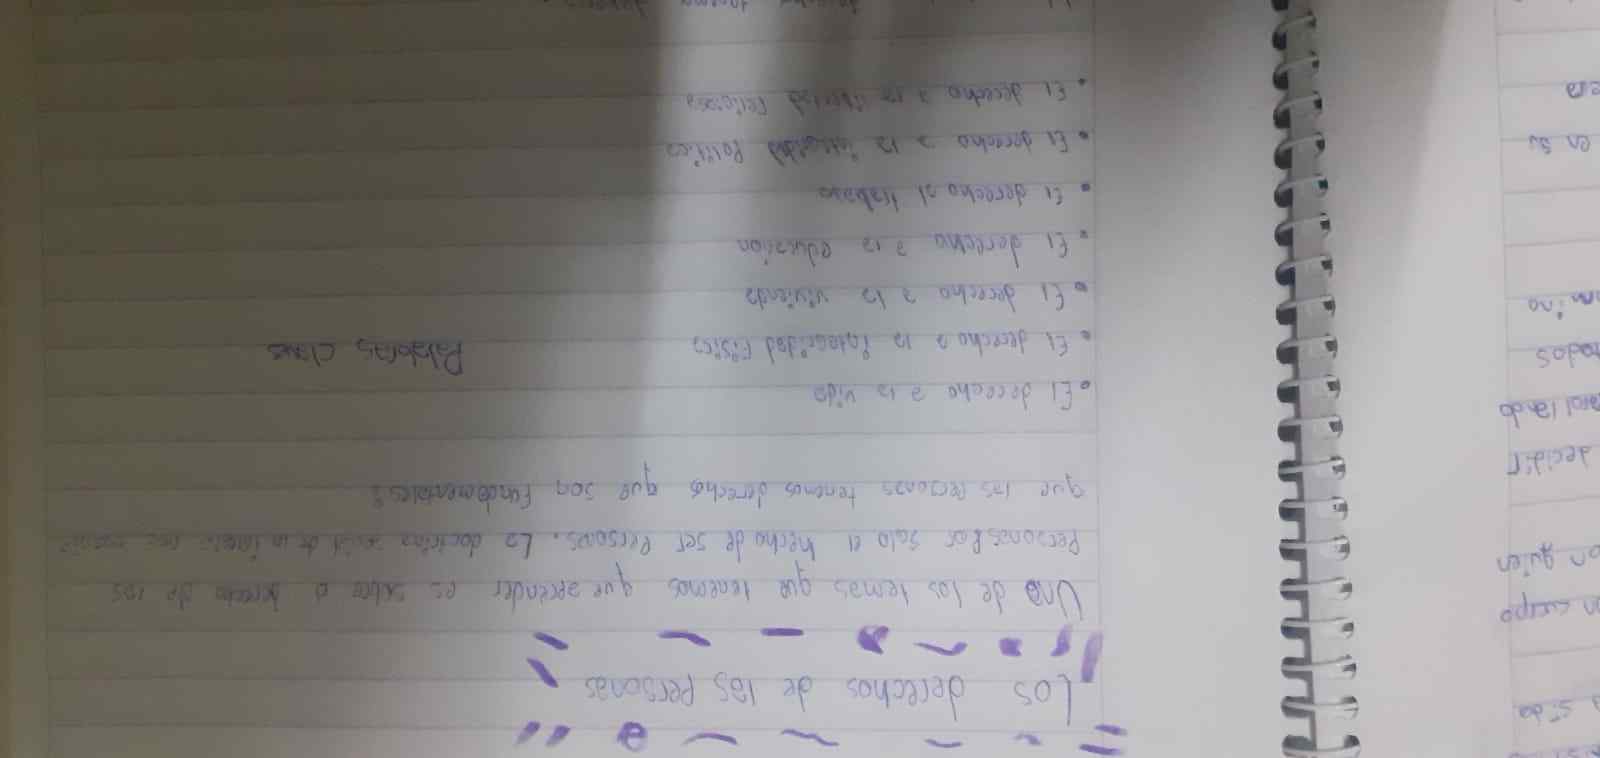 Los derechos de las Personas
Uno de los temas que tenemos que aprender es sobre el derecho de las
Personas Por solo el hecho de ser Persona. La doctrina social de la iglesia nos
que las Personas tenemos derechos que son fundamentales?
• El derecho a la vida
• El derecho a la integridad Física
Palabras claves
• El derecho a la vivienda
• El derecho a la educacion
• El derecho al trabajo
• El derecho a la integridad Politica
• El derecho a la libertad religiosa
sida
cuerpo
quien
decidir
en su